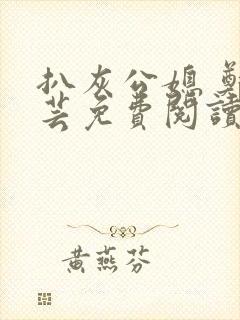 扒灰公媳
芸免費閱讀
黃燕芬